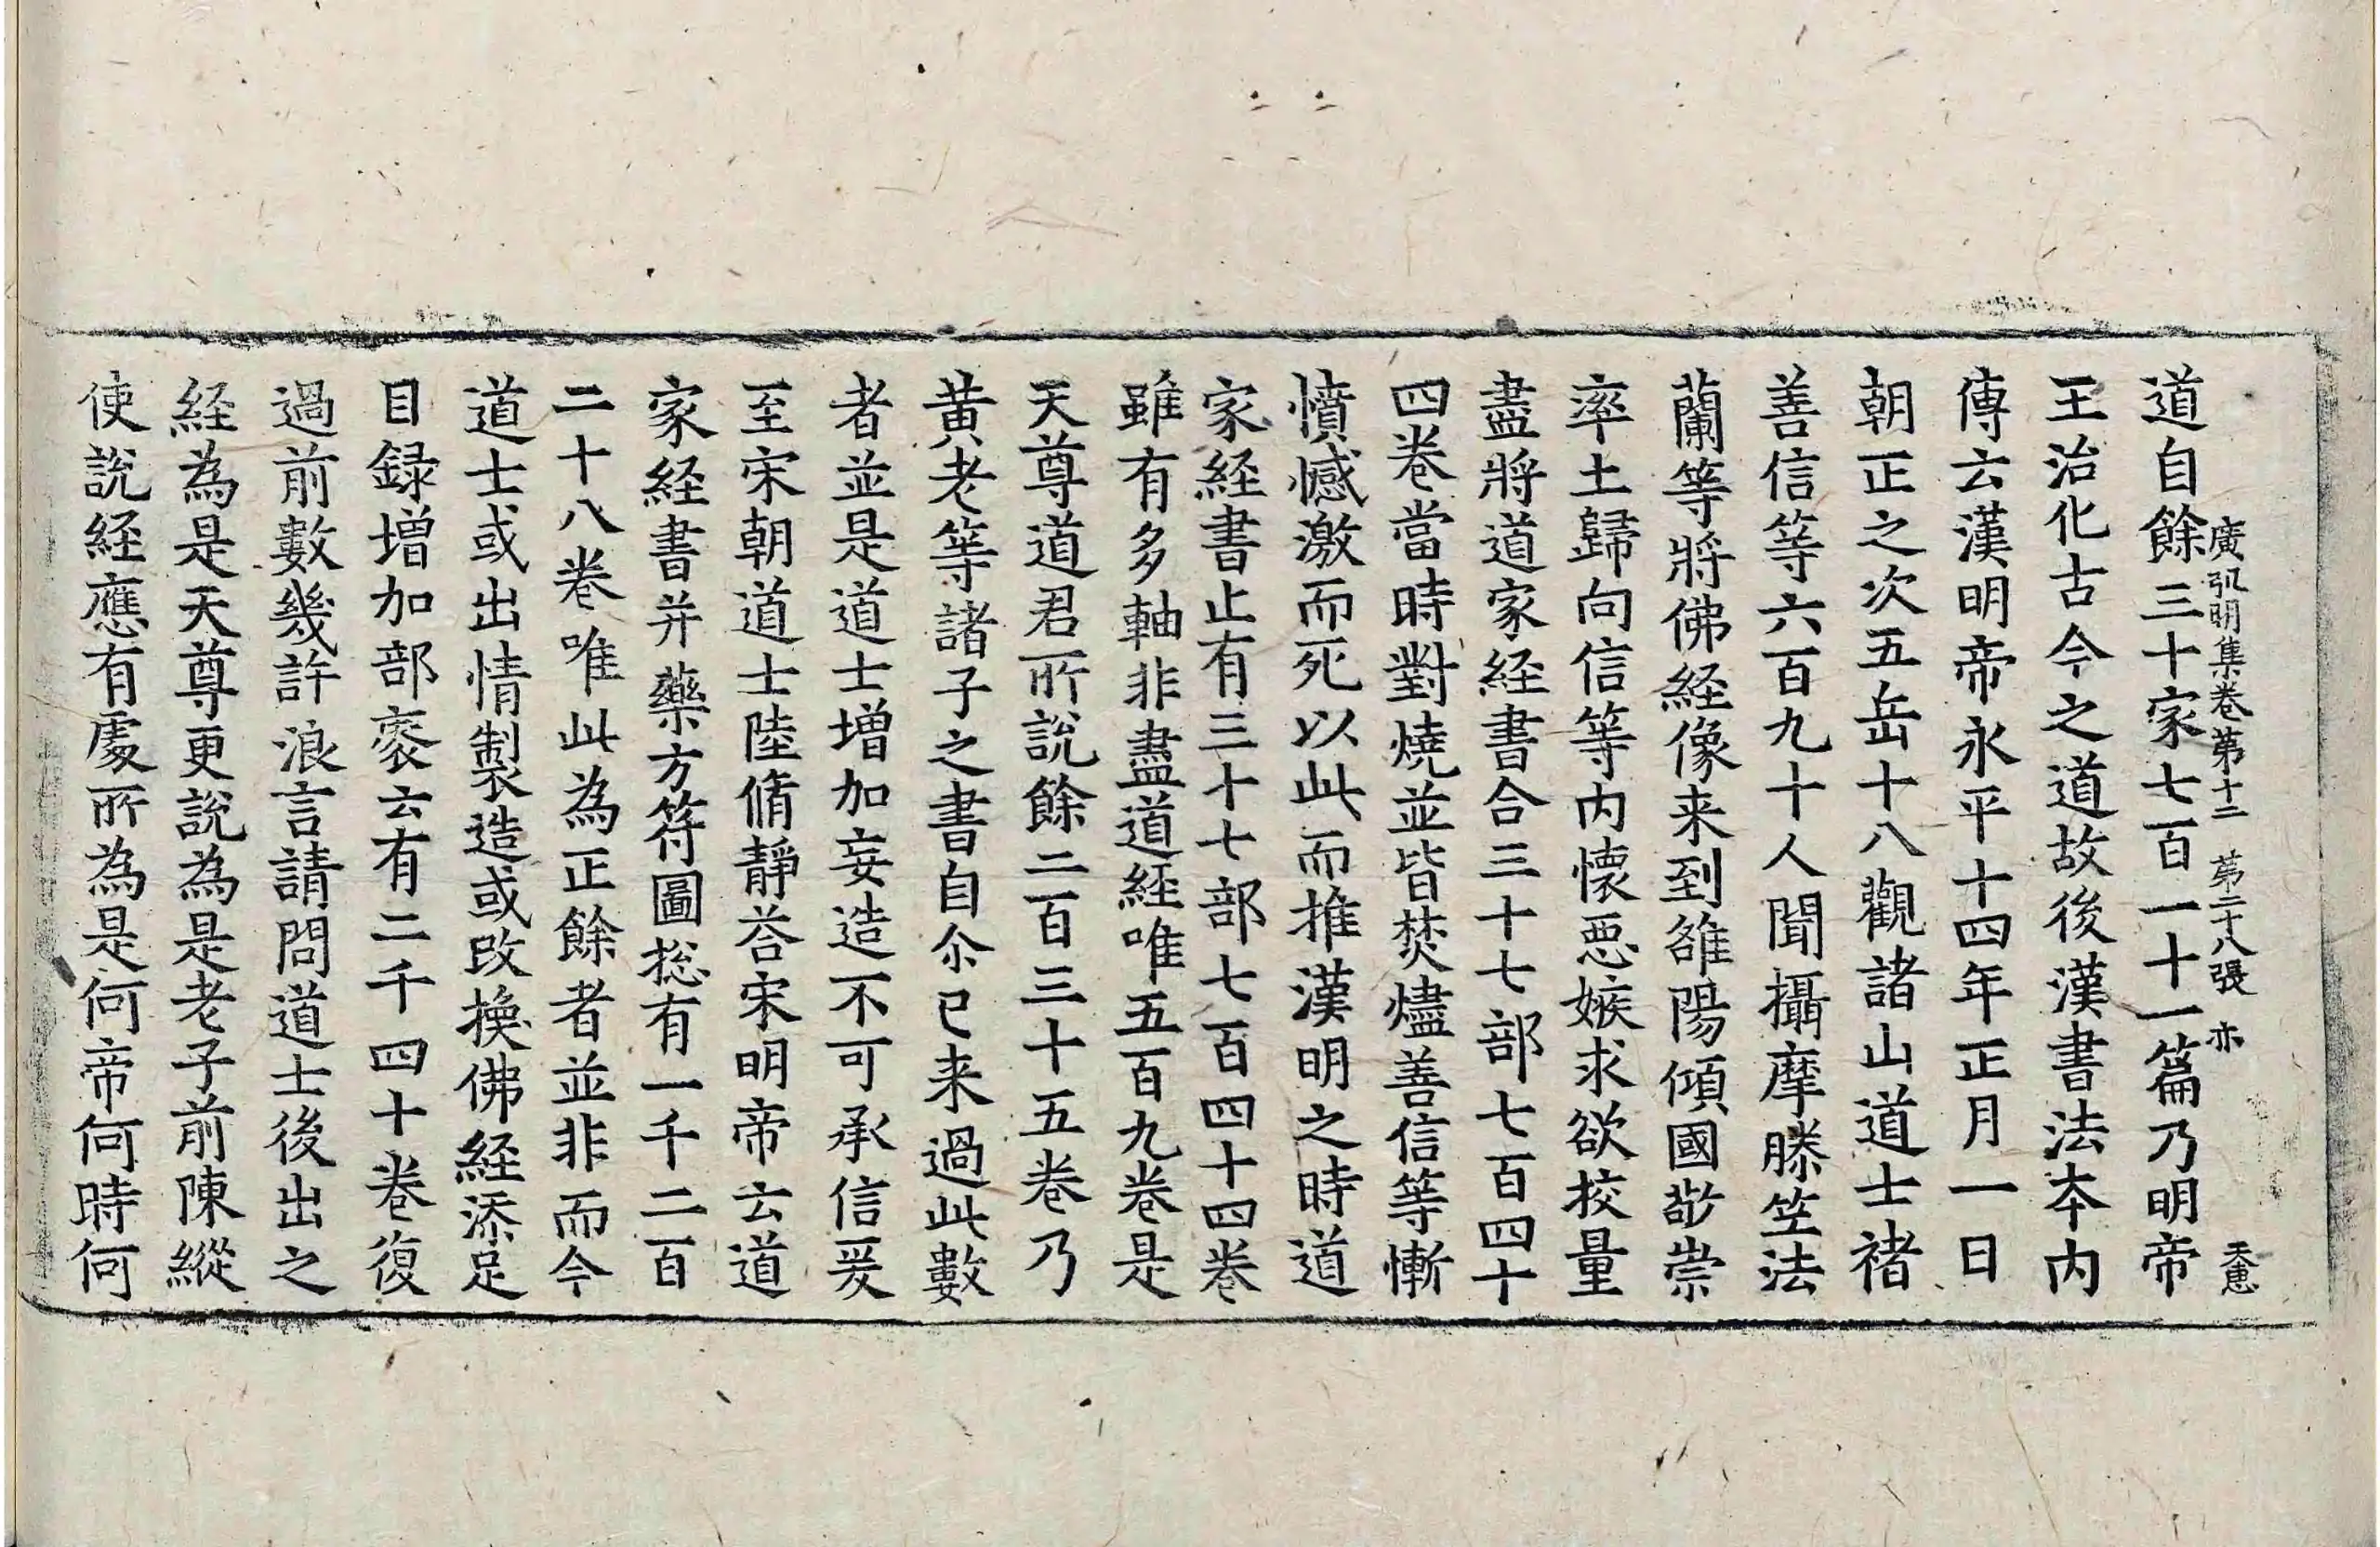 廣弘明集卷第十二 第二十八張 亦 天惠
道自餘三十家七百一十一篇乃明帝
王治化古今之道故後漢書法本内
傳云漢明帝永平十四年正月一日
朝正之次五岳十八觀諸山道士褚
善信等六百九十人聞攝摩騰竺法
蘭等將佛経像来到雒陽傾國敬崇
率土歸向信等内懷惡嫉求欲挍量
盡將道家経書合三十七部七百四十
四卷當時對燒並皆焚燼善信等慚
憤憾激而死以此而推漢明之時道
家経書止有三十七部七百四十四卷
雖有多軸非盡道経唯五百九卷是
天尊道君所說餘二百三十五卷乃
黄老等諸子之書自尒已来過此數
者並是道士增加妄造不可承信爰
至宋朝道士陸脩靜荅宋明帝云道
家経書并藥方符圖捴有一千二百
二十八卷唯此為正餘者並非而今
道士或出情製造或改換佛経添足
目録增加部袠云有二千四十卷復
過前數幾許浪言請問道士後出之
経為是天尊更說為是老子前陳縱
使說経應有處所為是何帝何時何